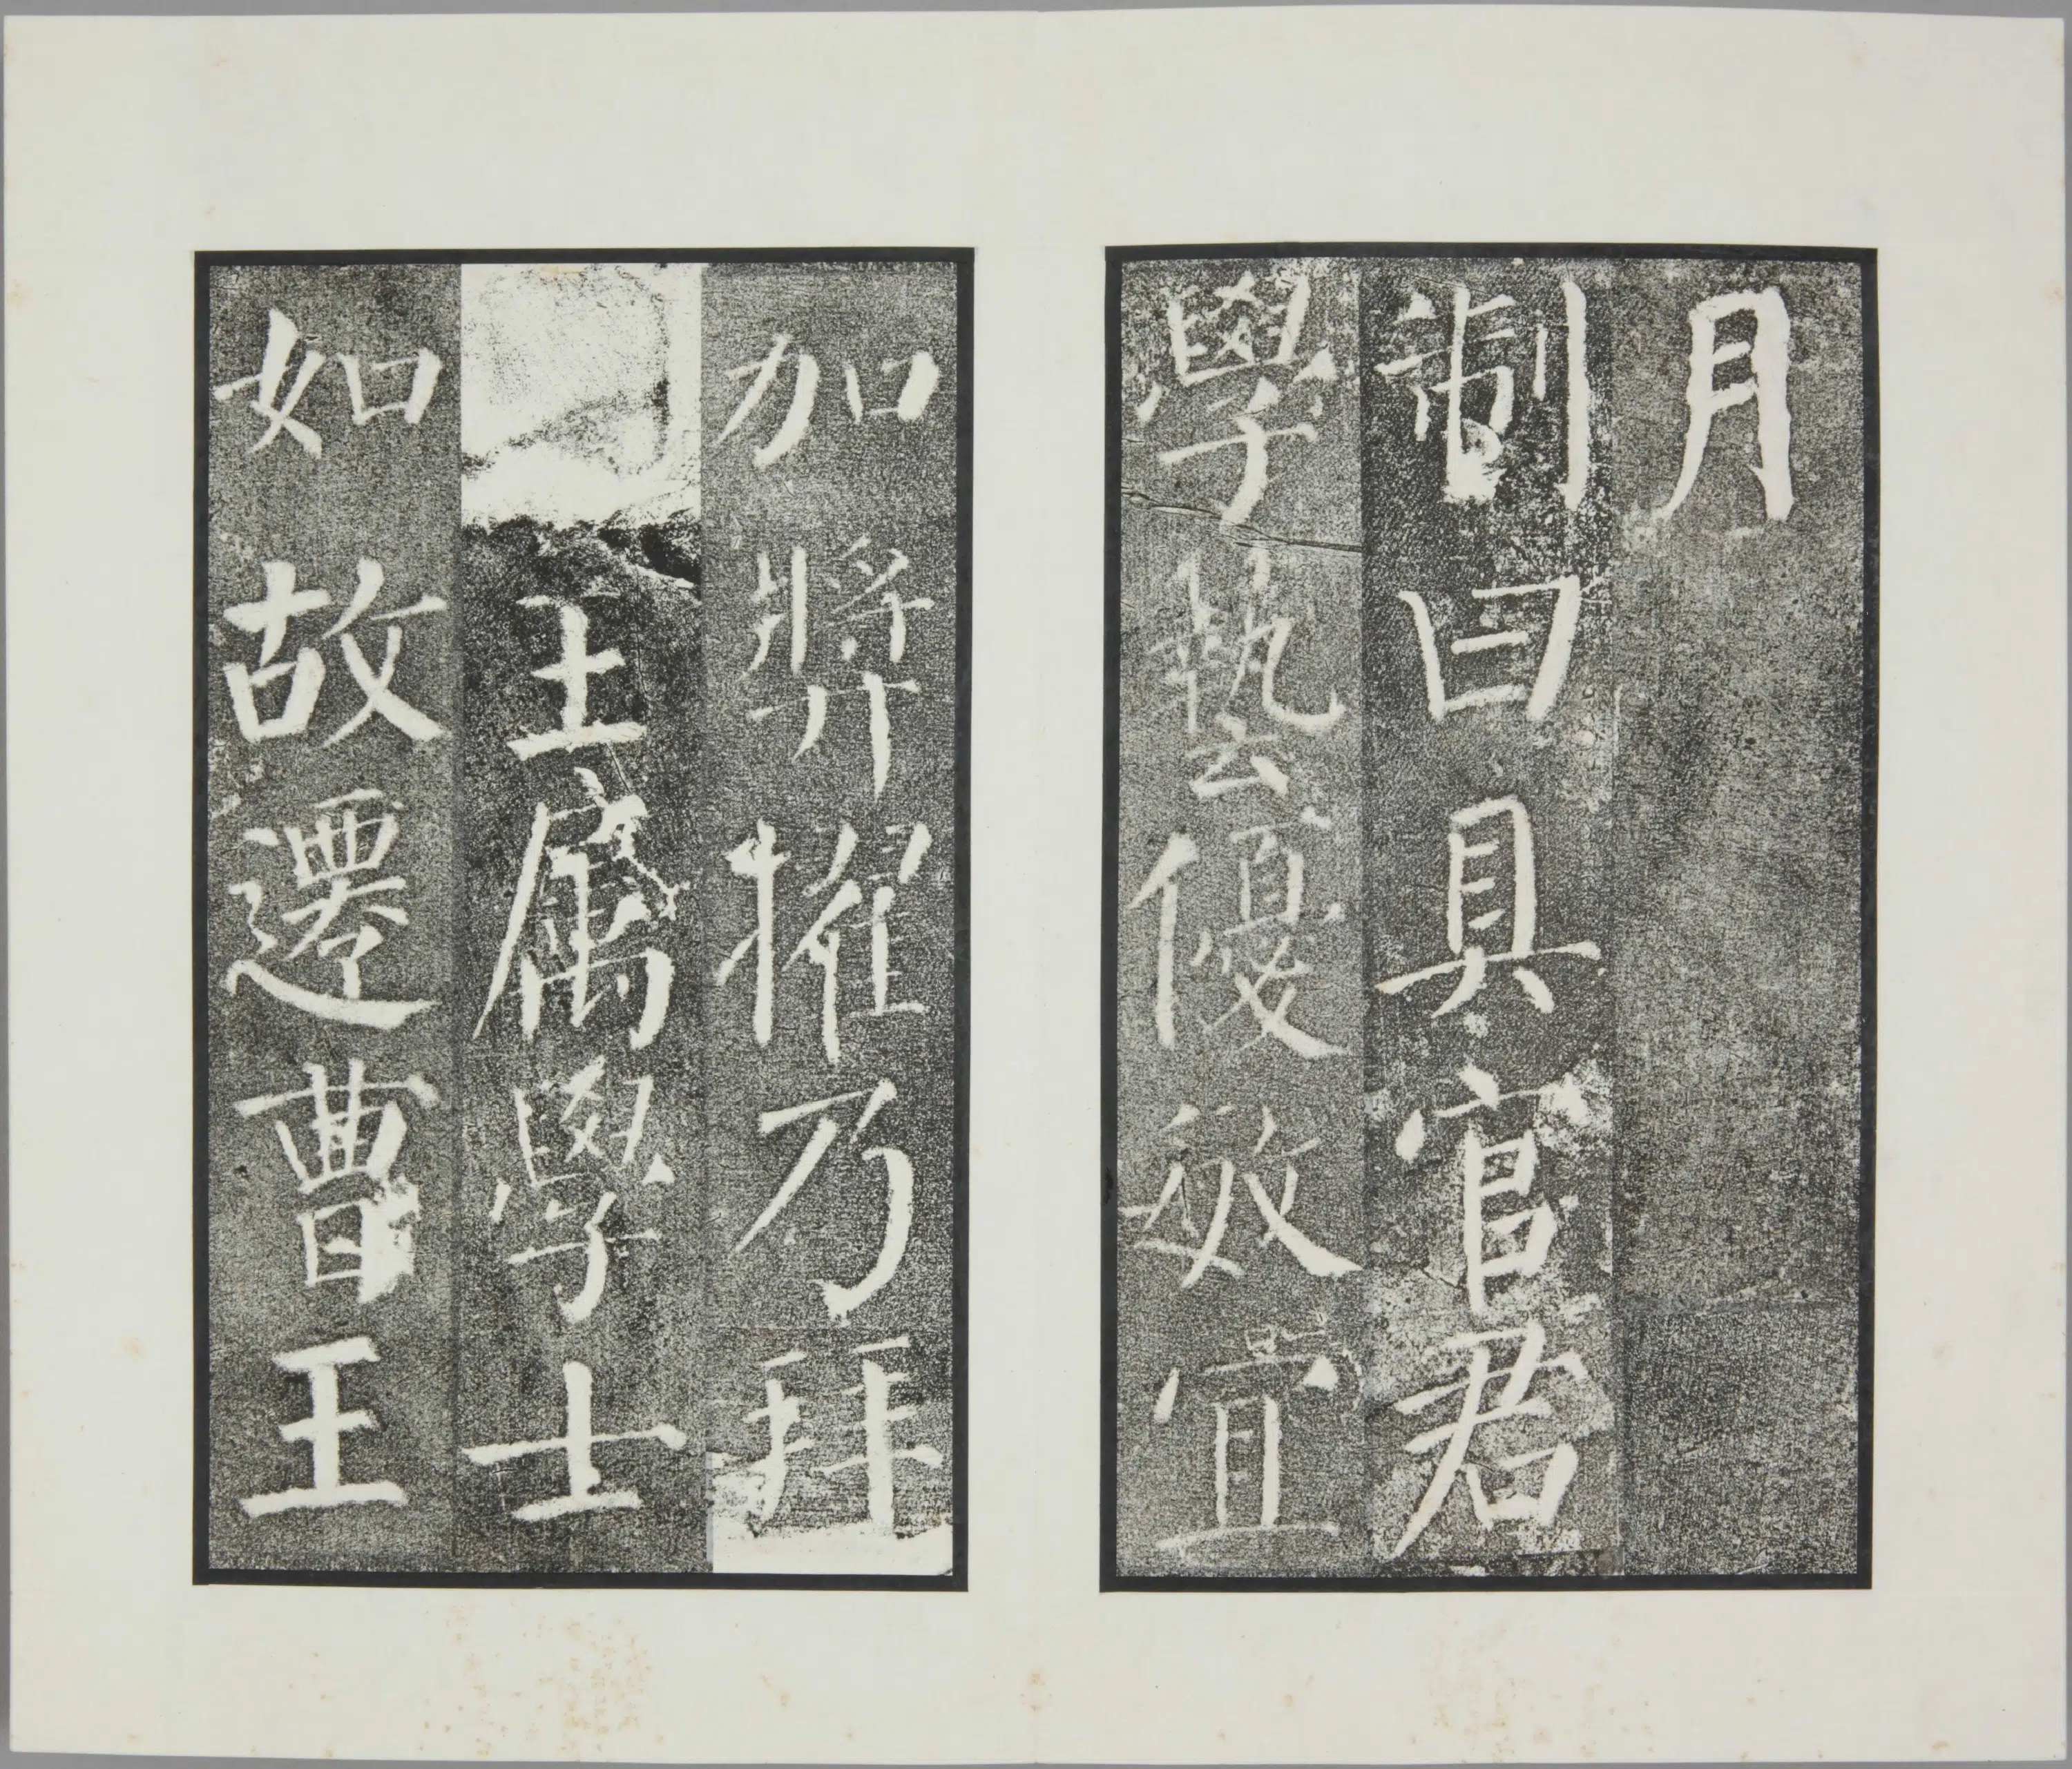 月
制曰具官君
學藝優敏宜
加奬擢乃拜
王屬學士
如故遷曹王